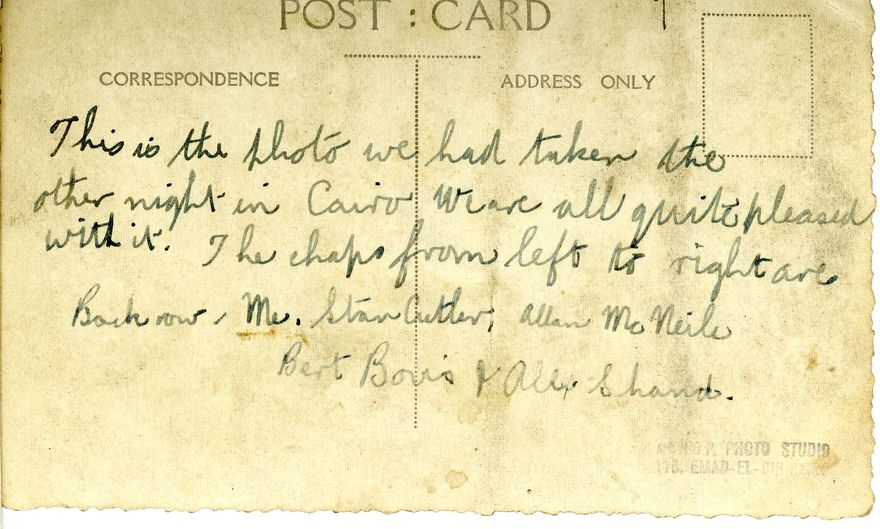 POST : CARD
CORRESPONDENCE
ADDRESS ONLY
This is the photo we had taken the
other night in Cairo We are all quite pleased
with it. The chaps from left to right are
Back row, Me. Stan Cutler, Allan McNeile
Bert Bovis & Alex Shand.
PHOTO STUDIO
EMAD-EL-